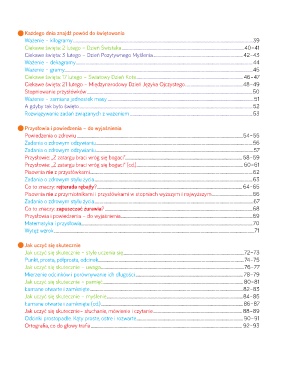 Każdego dnia znajdź powód do świętowania
Ważenie – kilogramy 39
Ciekawe święta: 2 Lutego – Dzień Świstaka 40–41
Ciekawe święta: 3 Lutego – Dzień Pozytywnego Myślenia 42–43
Ważenie – dekagramy 44
Ważenie – gramy 45
Ciekawe święta: 17 Lutego – Światowy Dzień Kota 46–47
Ciekawe święta: 21 Lutego – Międzynarodowy Dzień Języka Ojczystego 48–49
Stopniowanie przysłówków 50
Ważenie – zamiana jednostek masy 51
A gdyby tak było święto 52
Rozwiązywanie zadań związanych z ważeniem 53
Przysłowia i powiedzenia – do wyjaśnienia
Powiedzenia o zdrowiu 54–55
Zadania o zdrowym odżywianiu 56
Zadania o zdrowym odżywianiu 57
Przysłowie: „Z zatargu braci wróg się bogaci” 58–59
Przysłowie: „Z zatargu braci wróg się bogaci” (cd.) 60–61
Pisownia nie z przysłówkami 62
Zadania o zdrowym stylu życia 63
Co to znaczy: rejterada rękady? 64–65
Pisownia nie z przymiotnikami i przysłówkami w stopniach wyższym i najwyższym 66
Zadania o zdrowym stylu życia 67
Co to znaczy: zapuszczać żurawia? 68
Przysłowia i powiedzenia – do wyjaśnienia 69
Matematyka i przysłowia 70
Wyścig wozów 71
Jak uczyć się skutecznie
Jak uczyć się skutecznie – style uczenia się 72–73
Punkt, prosta, półprosta, odcinek 74–75
Jak uczyć się skutecznie – uwaga 76–77
Mierzenie odcinków i porównywanie ich długości 78–79
Jak uczyć się skutecznie – pamięć 80–81
Łamane otwarte i zamknięte 82–83
Jak uczyć się skutecznie – myślenie 84–85
Łamane otwarte i zamknięte (cd.) 86–87
Jak uczyć się skutecznie – słuchanie, mówienie i czytanie 88–89
Odcinki prostopadłe. Kąty proste, ostre i rozwarte 90–91
Ortografia, co do głowy trafia 92–93